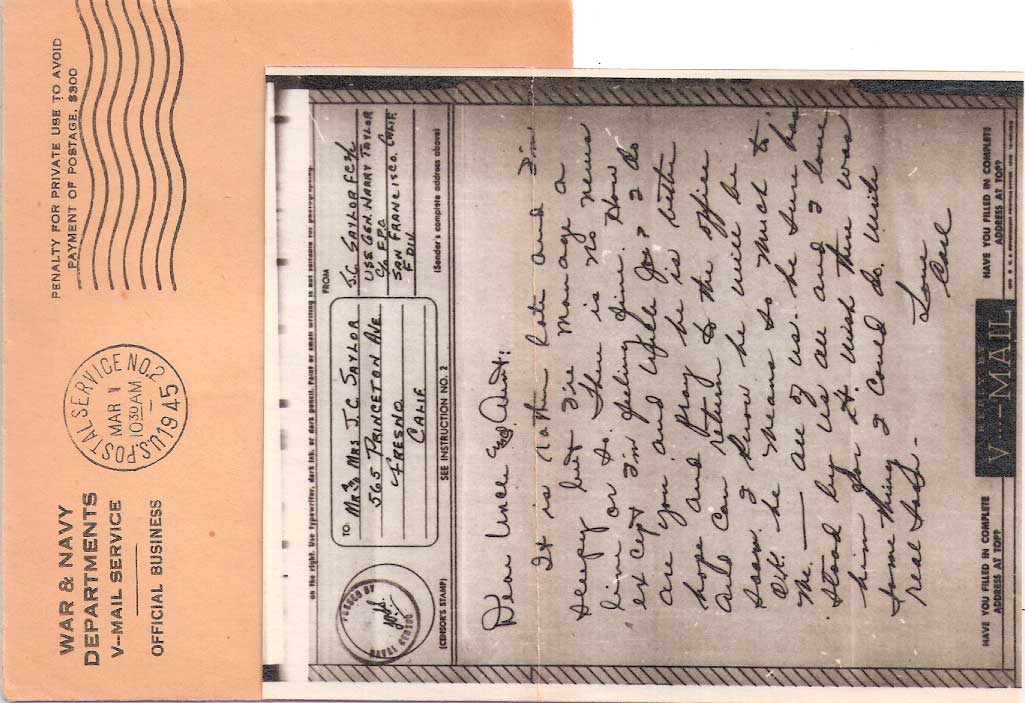 WAR & NAVY
DEPARTMENTS
V--MAIL SERVICE
OFFICIAL BUSINESS
U.S. POSTAL SERVICE NO. 2
MAR 1
10 30 AM
1945
PENALTY FOR PRIVATE USE TO AVOID
PAYMENT OF POSTAGE, $300
on the right. Use typewriter, dark ink, or dark pencil. Faint or small writing is not suitable for photographing.
PASSED BY
NAVAL CENSOR
(CENSOR'S STAMP)
TO
MR & MRS J.C. SAYLOR
565 PRINCETON AVE
FRESNO
CALIF
SEE INSTRUCTION NO. 2
FROM
J.C. SAYLOR FC 3/c
USS GEN. HARRY TAYLOR
C/o F.P.O.
SAN FRANCISCO, CALIF
F DIV
(Sender's complete address above)
Dear Unce & Aunt:
It is rather late and I'm
sleepy but I'll manage a
line or so. There is no news
except I'm feeling fine. How
are you and Uncle ? I do
hope and pray he is better
and can return to the office
soon. I know he will be
O.K. he means so much to
me — all of us. he sure has
stood by us all and I love
him for it. Wish there was
something I could do. Write
real soon.
Love
Carl
HAVE YOU FILLED IN COMPLETE
ADDRESS AT TOP?
V---MAIL
HAVE YOU FILLED IN COMPLETE
ADDRESS AT TOP?